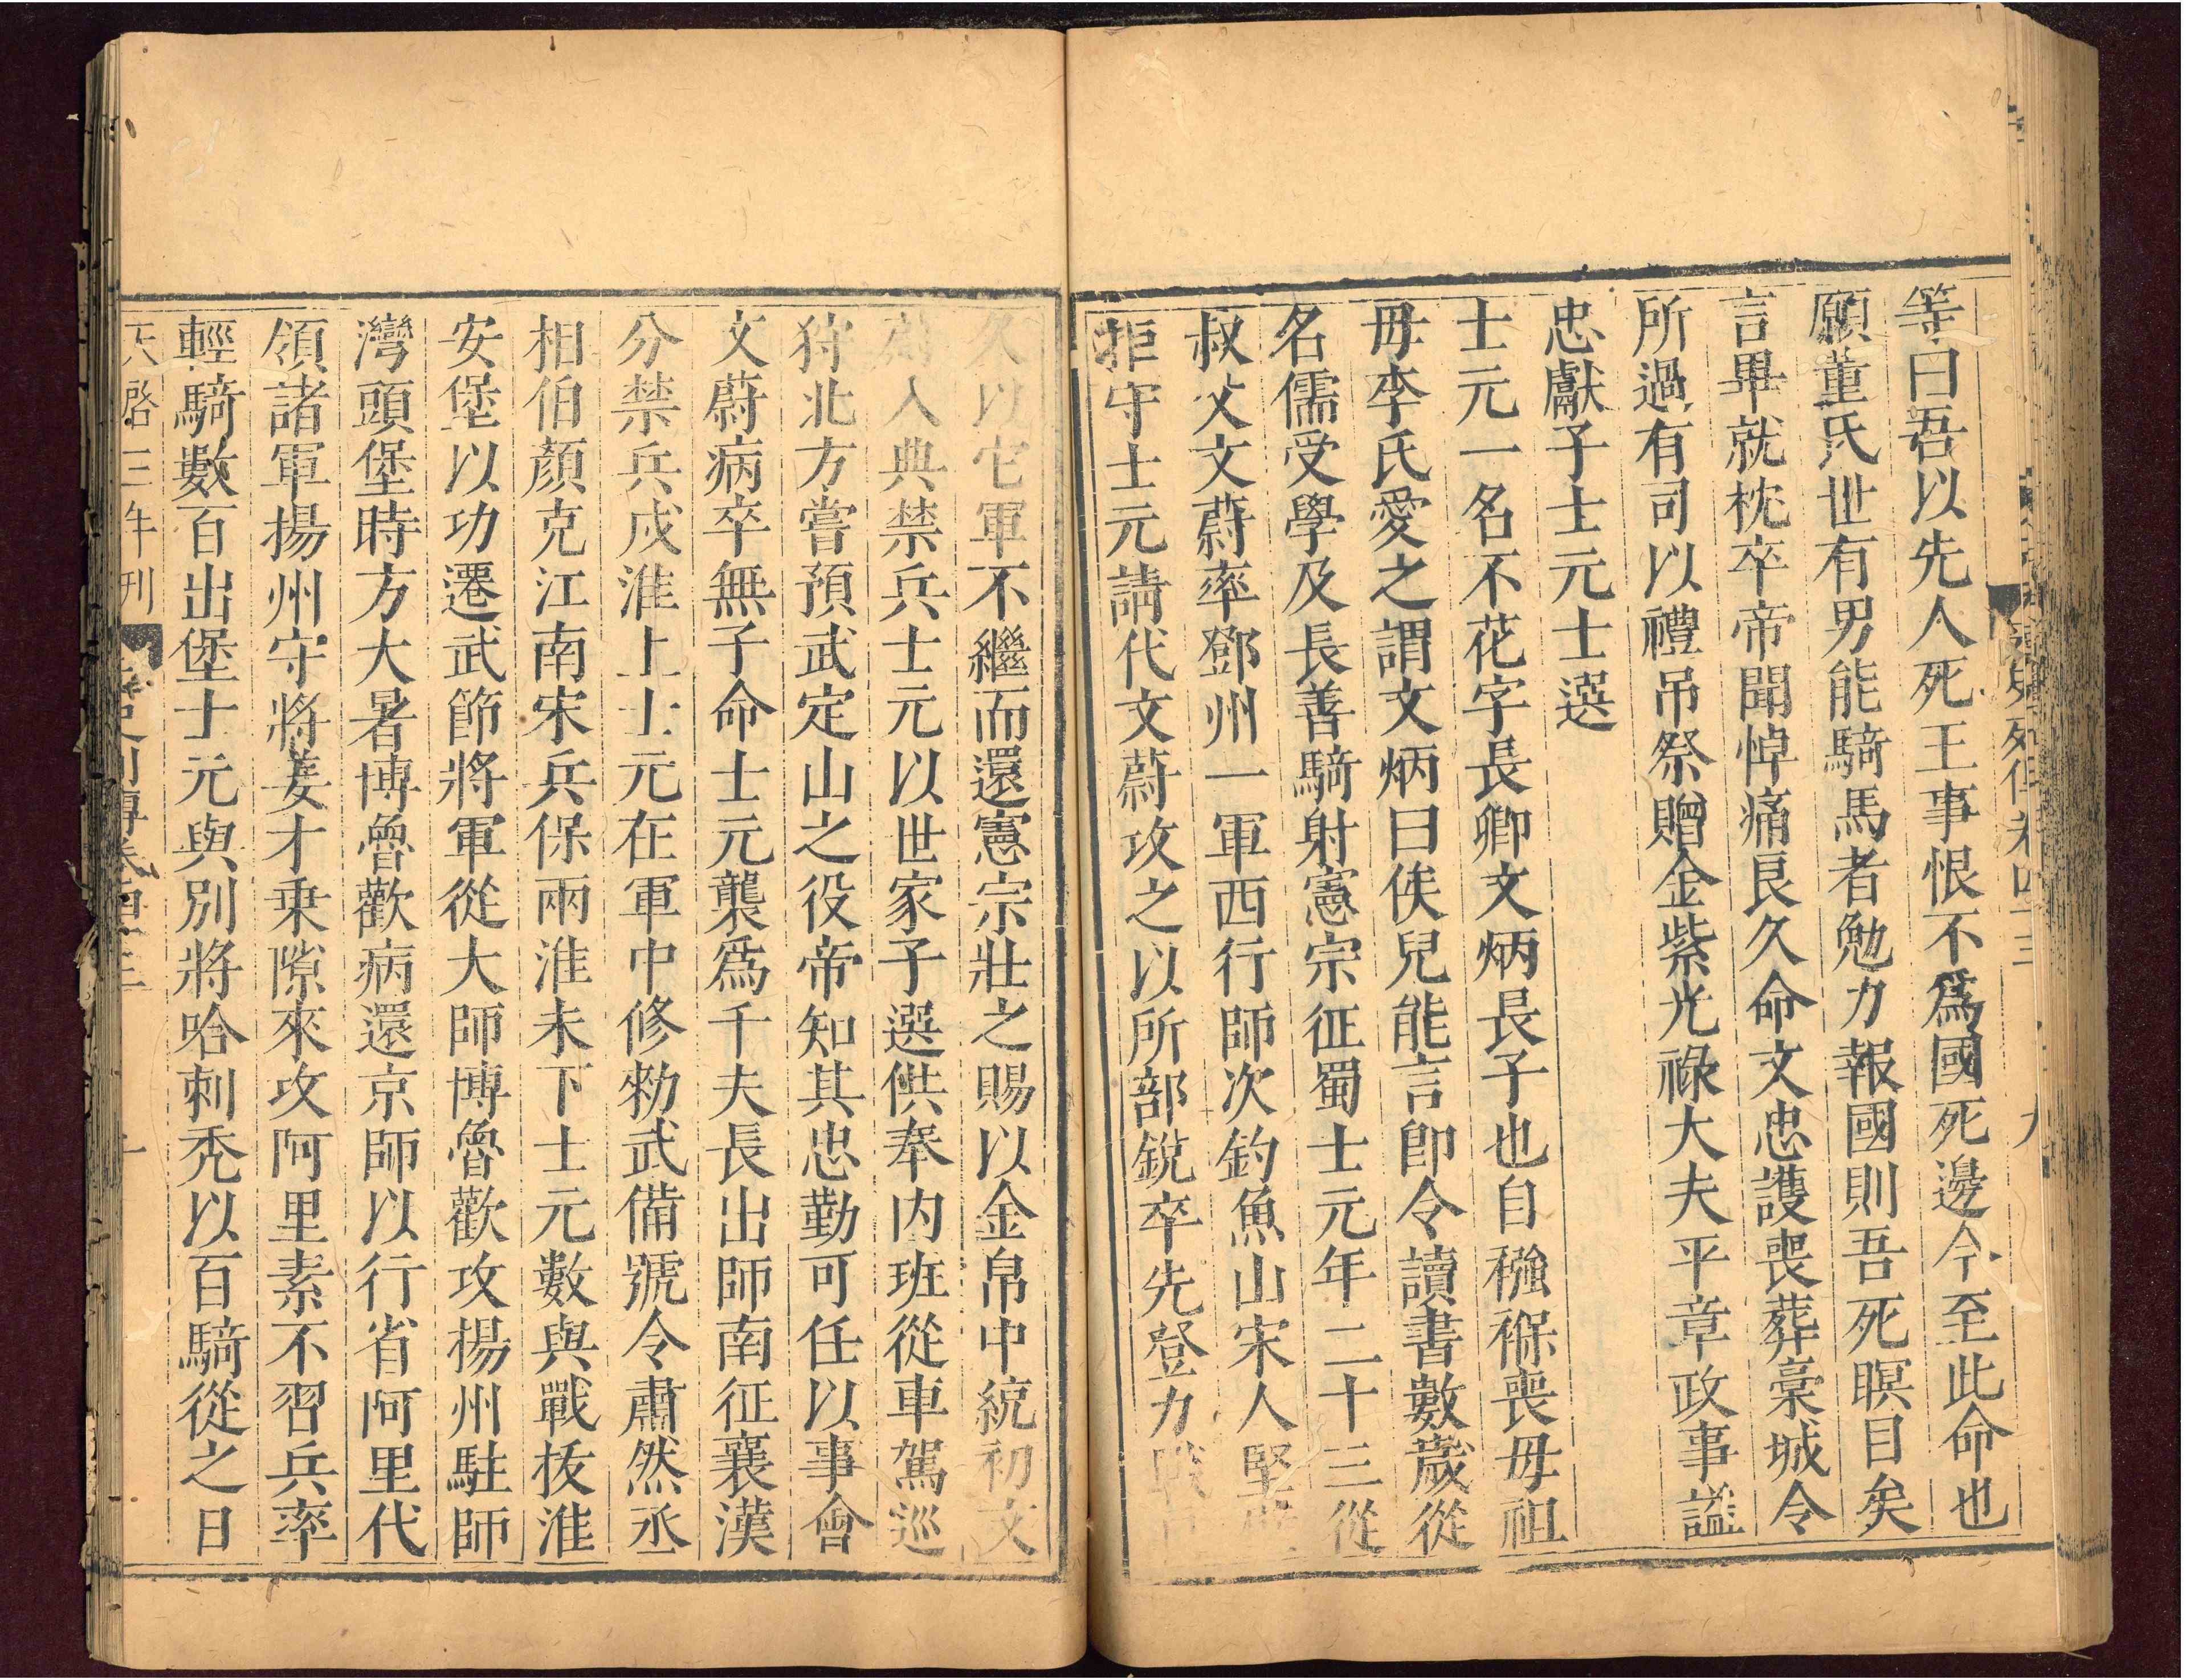 等曰吾以先人死王事恨不爲國死邊今至此命也
願董氏世有男能騎馬者勉力報國則吾死瞑目矣
言畢就枕卒帝聞悼痛良久命文忠護喪葬藁城令
所過有司以禮吊祭贈金紫光祿大夫平章政事謚
忠獻子士元士選
士元一名不花字長卿文炳長子也自襁褓喪母祖
母李氏愛之謂文炳曰俟兒能言即令讀書數歲從
名儒受學及長善騎射憲宗征蜀士元年二十三從
叔父文蔚率鄧州一軍西行師次釣魚山宋人堅壁
拒守士元請代文蔚攻之以所部銳卒先登力戰
久以它軍不繼而還憲宗壯之賜以金帛中統初文
蔚入典禁兵士元以世家子選供奉内班從車駕巡
狩北方嘗預武定山之役帝知其忠勤可任以事會
文蔚病卒無子命士元襲爲千夫長出師南征襄漢
分禁兵戍淮上士元在軍中修勑武備號令肅然丞
相伯顏克江南宋兵保兩淮未下士元數與戰拔淮
安堡以功遷武節將軍從大師博魯歡攻揚州駐師
灣頭堡時方大暑博魯歡病還京師以行省阿里代
領諸軍揚州守將姜才乗隙來攻阿里素不習兵率
輕騎數百出堡士元與別將哈剌禿以百騎從之日
天啓三年刊 元史列傳卷四三 十